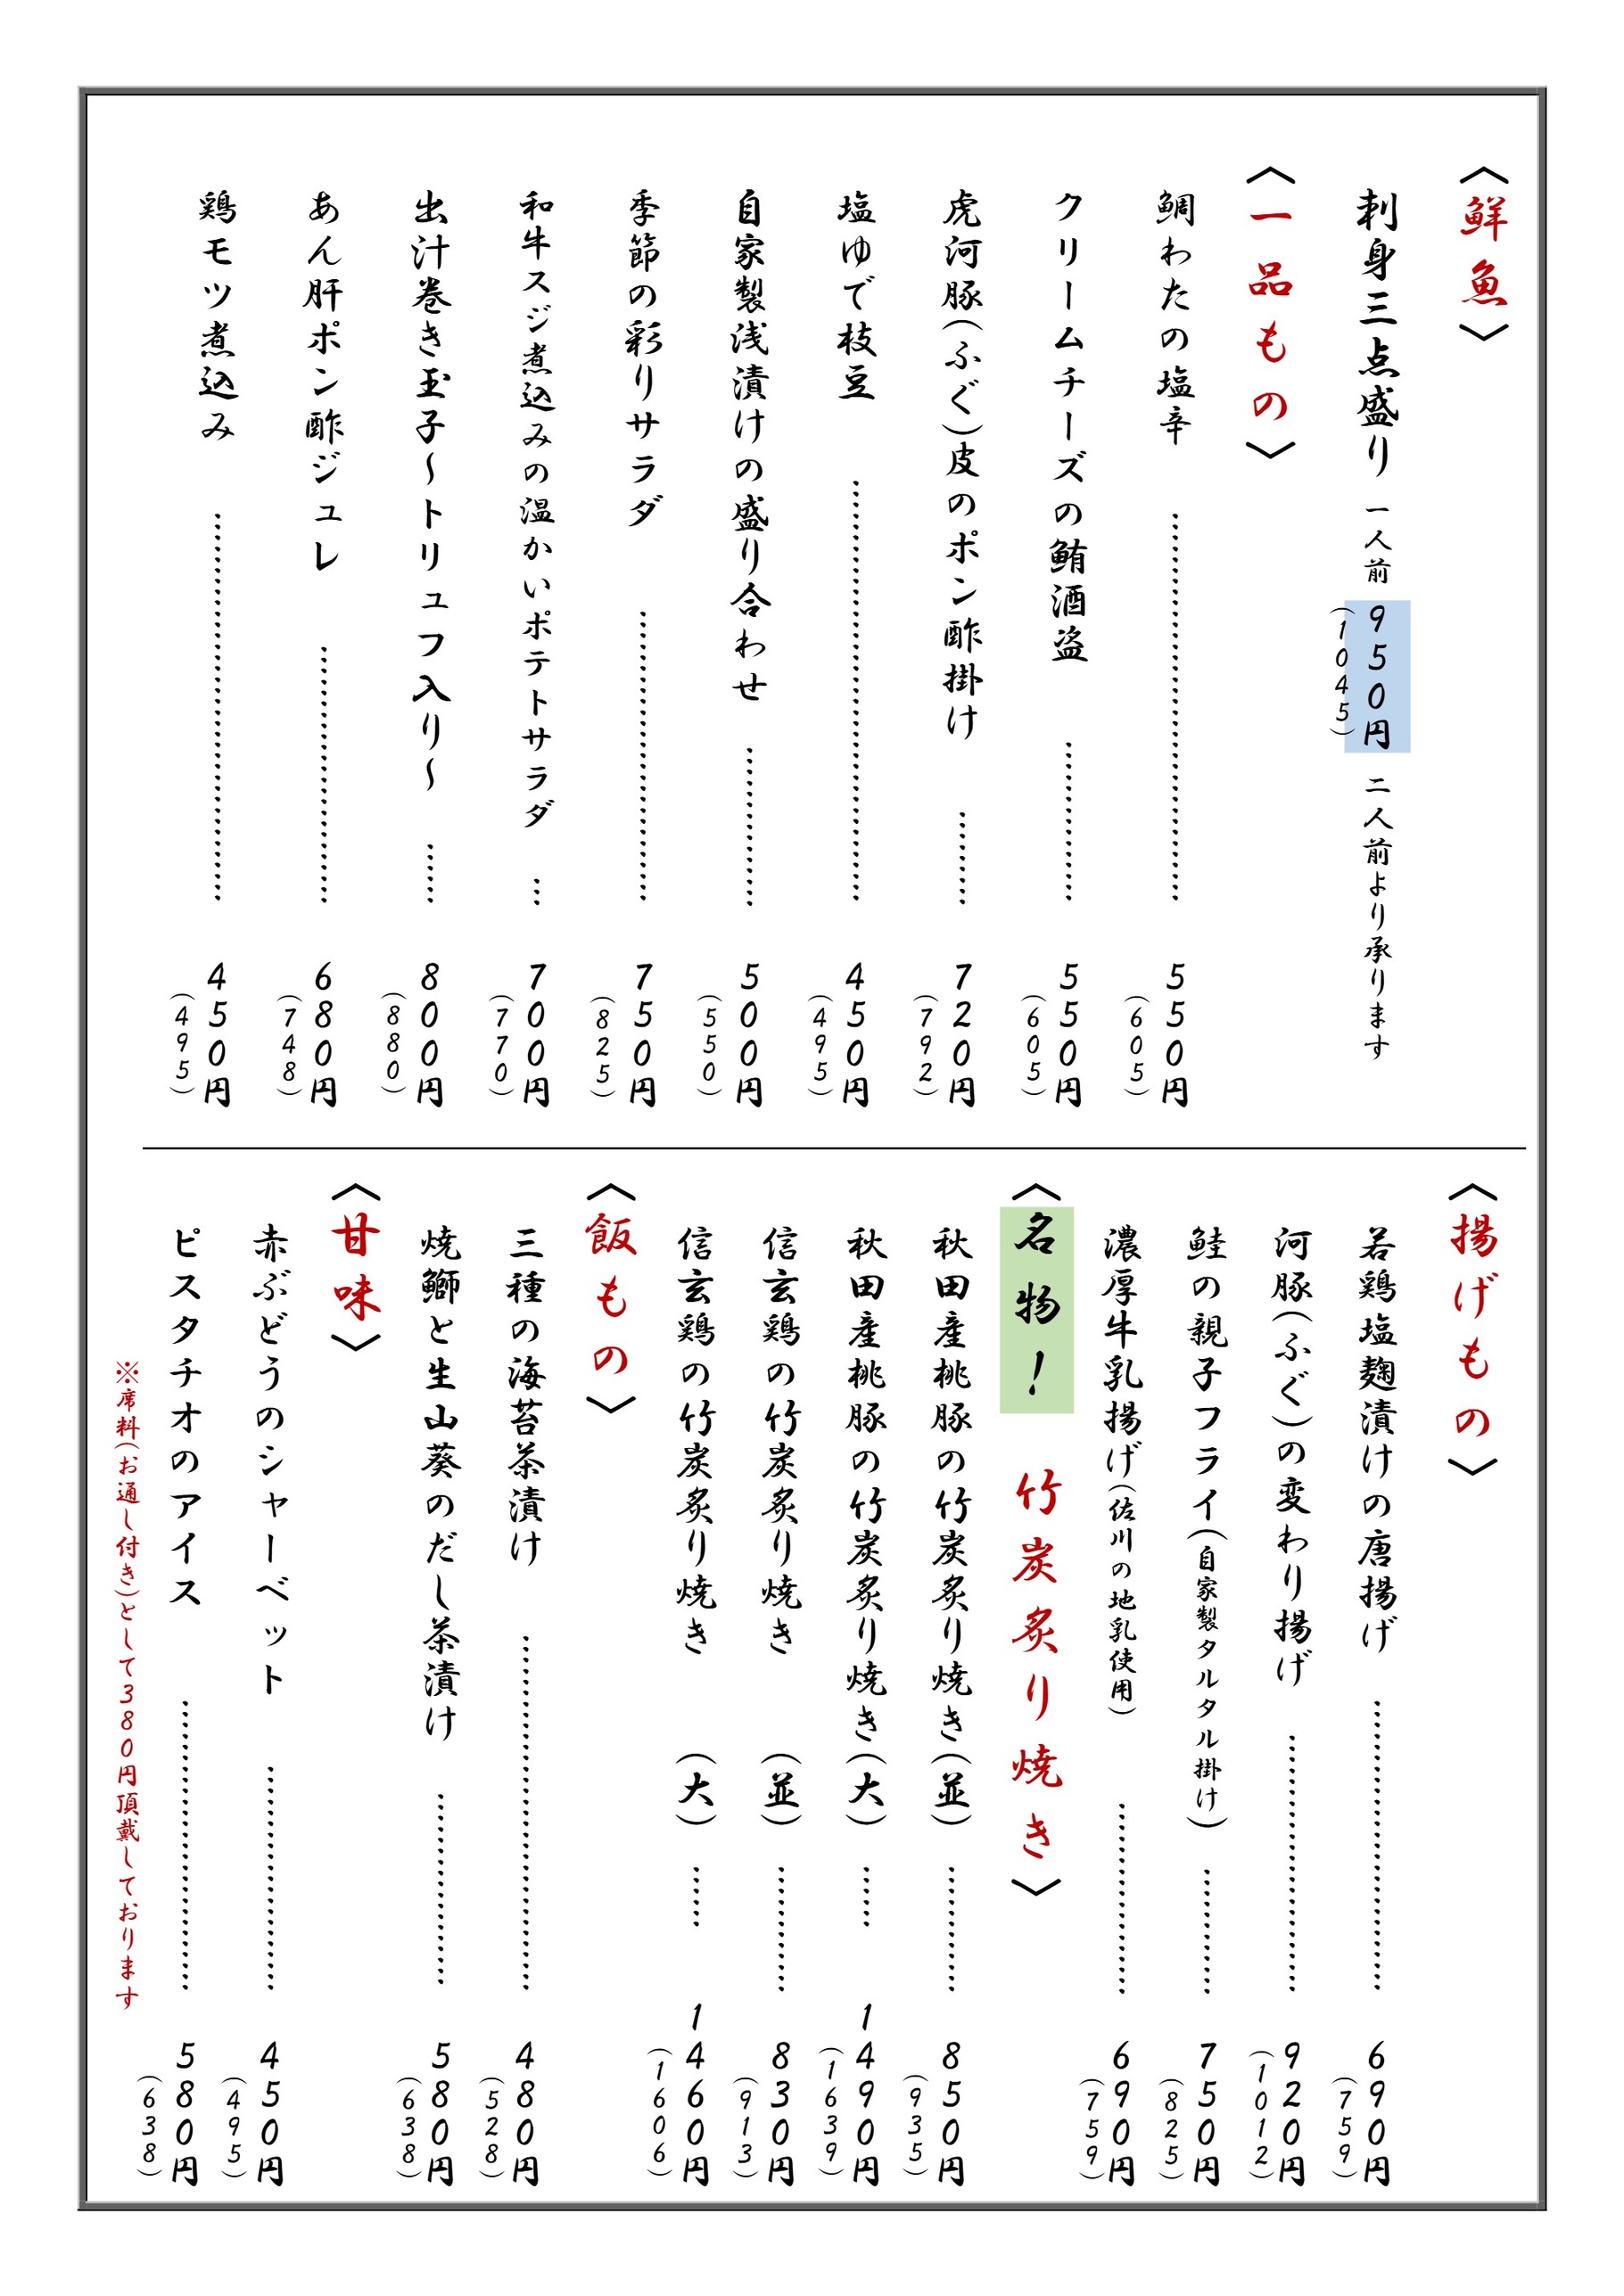 〈鮮魚〉
刺身三点盛り 一人前 950円 二人前より承ります
(1045)
〈一品もの〉
鯛わたの塩辛 ………… 550円
(605)
クリームチーズの鮪酒盗 ………… 550円
(605)
虎河豚(ふぐ)皮のポン酢掛け ………… 720円
(792)
塩ゆで枝豆 ………… 450円
(495)
自家製浅漬けの盛り合わせ ………… 500円
(550)
季節の彩りサラダ ………… 750円
(825)
和牛スジ煮込みの温かいポテトサラダ … 700円
(770)
出汁巻き玉子～トリュフ入り～ …… 800円
(880)
あん肝ポン酢ジュレ ………… 680円
(748)
鶏モツ煮込み ………… 450円
(495)
〈揚げもの〉
若鶏塩麹漬けの唐揚げ ………… 690円
(759)
河豚(ふぐ)の変わり揚げ ………… 920円
(1012)
鮭の親子フライ(自家製タルタル掛け) ………… 750円
(825)
濃厚牛乳揚げ(佐川の地乳使用) ………… 690円
(759)
〈名物！ 竹炭炙り焼き〉
秋田産桃豚の竹炭炙り焼き(並) ………… 850円
(935)
秋田産桃豚の竹炭炙り焼き(大) …… 1490円
(1639)
信玄鶏の竹炭炙り焼き (並) ………… 830円
(913)
信玄鶏の竹炭炙り焼き (大) …… 1460円
(1606)
〈飯もの〉
三種の海苔茶漬け ………… 480円
(528)
焼鰤と生山葵のだし茶漬け ………… 580円
(638)
〈甘味〉
赤ぶどうのシャーベット ………… 450円
(495)
ピスタチオのアイス ………… 580円
(638)
※席料(お通し付き)として380円頂戴しております